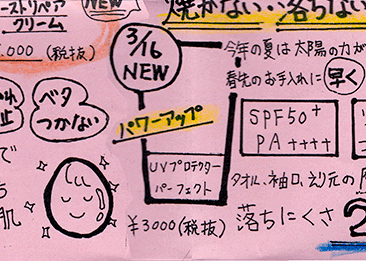 ーストリペア
クリーム
NEW
,000 (税抜)
焼かない・・落ちない
3/16
NEW
今年の夏は太陽の力が
春先のお手入れに早く
止
ベタ
つかない
パワーアップ
SPF50+
PA++++
で
UVプロテクター
パーフェクト
タオル、袖口、えり元の
肌
¥3000(税抜)
落ちにくさ
2